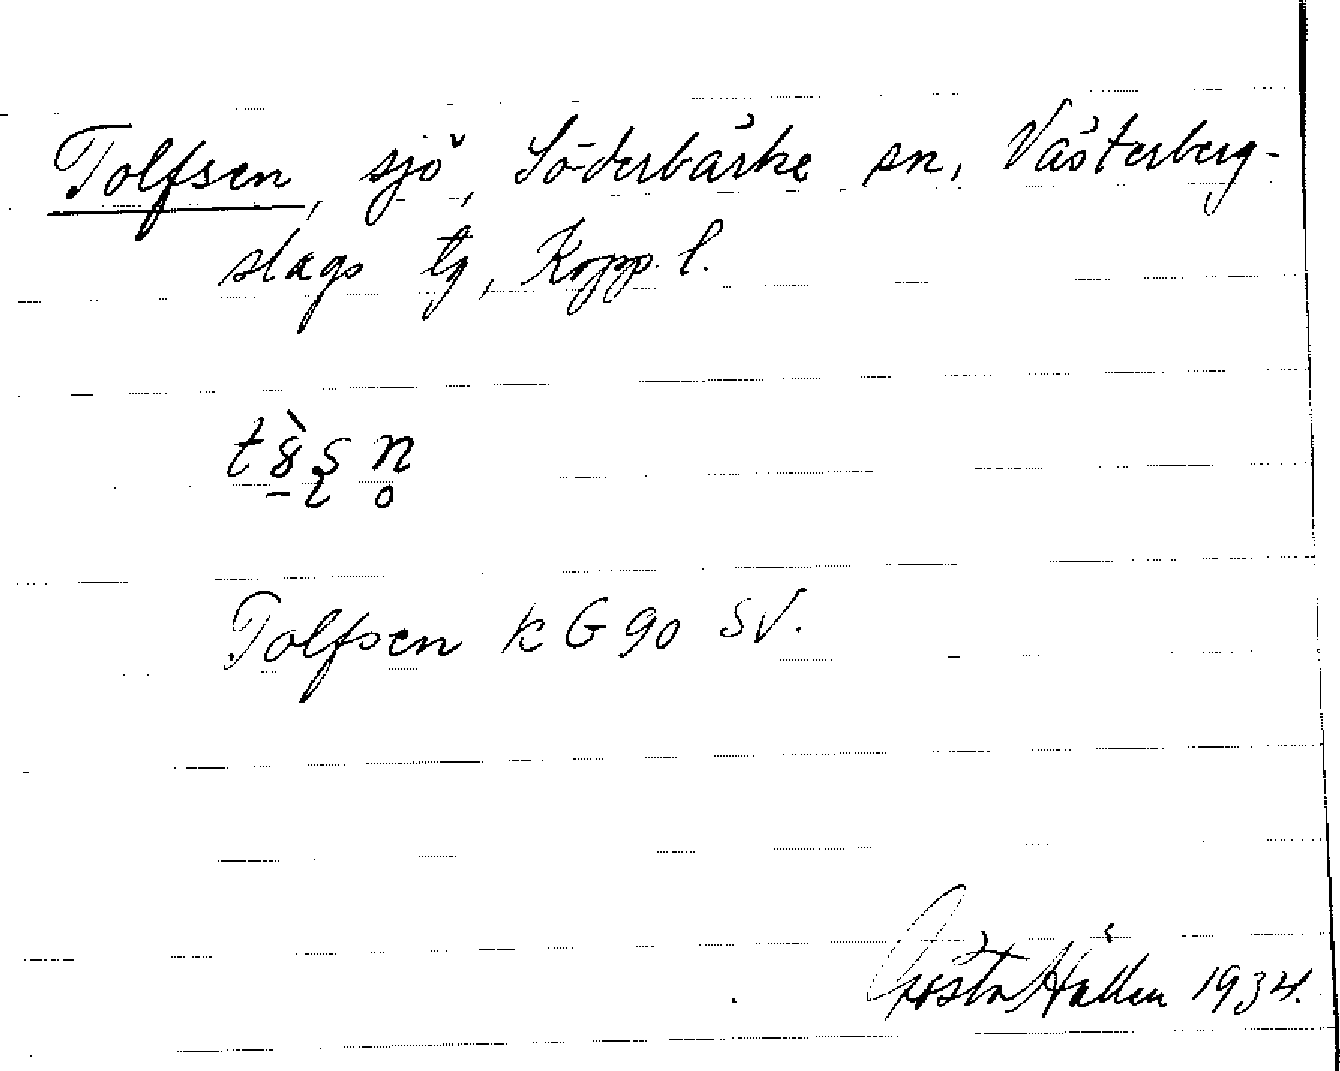 Tolfsen, sjö, Söderbärke sn, Västerberg-
slags tg, Kopp. l.
Tolfsen k G 90 SV.
Gösta Hallen 1934.